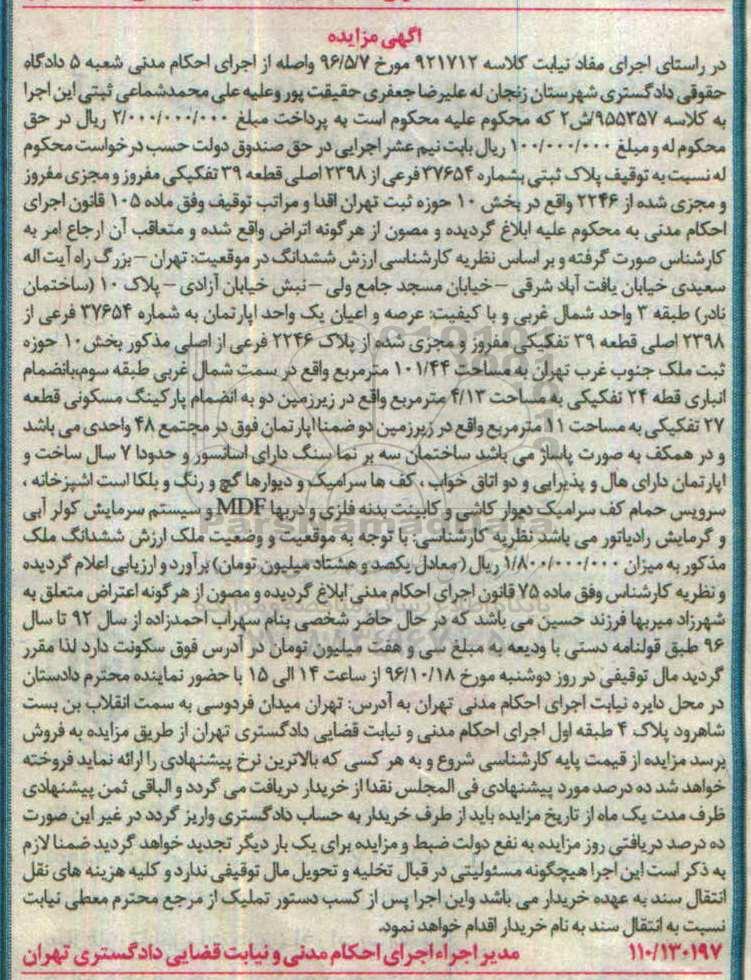 آگهی مزایده
در راستای اجرای مفاد نیابت کلاسه ۹۲۱۷۱۲ مورخ ۹۶/۵/۷ واصله از اجرای احکام مدنی شعبه ۵ دادگاه
حقوقی دادگستری شهرستان زنجان له علیرضا جعفری حقیقت پور وعلیه علی محمدشماعی ثبتی این اجرا
به کلاسه ۹۵۵۳۵۷/ش۲ که محکوم علیه محکوم است به پرداخت مبلغ ۲/۰۰۰/۰۰۰/۰۰۰ ریال در حق
محکوم له و مبلغ ۱۰۰/۰۰۰/۰۰۰ ریال بابت نیم عشر اجرایی در حق صندوق دولت حسب درخواست محکوم
له نسبت به توقیف پلاک ثبتی بشماره ۳۷۶۵۴ فرعی از ۲۳۹۸ اصلی قطعه ۳۹ تفکیکی مفروز و مجزی مفروز
و مجزی شده از ۲۲۴۶ واقع در بخش ۱۰ حوزه ثبت تهران اقدا و مراتب توقیف وفق ماده ۱۰۵ قانون اجرای
احکام مدنی به محکوم علیه ابلاغ گردیده و مصون از هرگونه اتراض واقع شده و متعاقب آن ارجاع امر به
کارشناس صورت گرفته و بر اساس نظریه کارشناسی ارزش ششدانگ در موقعیت: تهران –بزرگ راه آیت اله
سعیدی خیابان یافت آباد شرقی –خیابان مسجد جامع ولی – نبش خیابان آزادی – پلاک ۱۰ (ساختمان
نادر) طبقه ۳ واحد شمال غربی و با کیفیت: عرصه و اعیان یک واحد اپارتمان به شماره ۳۷۶۵۴ فرعی از
۲۳۹۸ اصلی قطعه ۳۹ تفکیکی مفروز و مجزی شده از پلاک ۲۲۴۶ فرعی از اصلی مذکور بخش۱۰ حوزه
ثبت ملک جنوب غرب تهران به مساحت ۱۰۱/۴۴ مترمربع واقع در سمت شمال غربی طبقه سوم،بانضمام
انباری قطه ۲۴ تفکیکی به مساحت ۴/۱۳ مترمربع واقع در زیرزمین دو به انضمام پارکینگ مسکونی قطعه
۲۷ تفکیکی به مساحت ۱۱ مترمربع واقع در زیرزمین دو ضمنا اپارتمان فوق در مجتمع ۴۸ واحدی می باشد
و در همکف به صورت پاساژ می باشد ساختمان سه بر نما سنگ دارای اسانسور و حدودا ۷ سال ساخت و
اپارتمان دارای هال و پذیرایی و دو اتاق خواب ، کف ها سرامیک و دیوارها گچ و رنگ و بلکا است اشپزخانه ،
سرویس حمام کف سرامیک دیوار کاشی و کابینت بدنه فلزی و دربها MDF و سیستم سرمایش کولر آبی
و گرمایش رادیاتور می باشد نظریه کارشناسی: با توجه به موقعیت و وضعیت ملک ارزش ششدانگ ملک
مذکور به میزان ۱/۸۰۰/۰۰۰/۰۰۰ ریال (معادل یکصد و هشتاد میلیون تومان) برآورد و ارزیابی اعلام گردیده
و نظریه کارشناس وفق ماده ۷۵ قانون اجرای احکام مدنی ابلاغ گردیده و مصون از هرگونه اعتراض متعلق به
شهرزاد میربها فرزند حسین می باشد که در حال حاضر شخصی بنام سهراب احمدزاده از سال ۹۲ تا سال
۹۶ طبق قولنامه دستی با ودیعه به مبلغ سی و هفت میلیون تومان در آدرس فوق سکونت دارد لذا مقرر
گردید مال توقیفی در روز دوشنبه مورخ ۹۶/۱۰/۱۸ از ساعت ۱۴ الی ۱۵ با حضور نماینده محترم دادستان
در محل دایره نیابت اجرای احکام مدنی تهران به آدرس: تهران میدان فردوسی به سمت انقلاب بن بست
شاهرود پلاک ۴ طبقه اول اجرای احکام مدنی و نیابت قضایی دادگستری تهران از طریق مزایده به فروش
برسد مزایده از قیمت پایه کارشناسی شروع و به هر کسی که بالاترین نرخ پیشنهادی را ارائه نماید فروخته
خواهد شد ده درصد مورد پیشنهادی فی المجلس نقدا از خریدار دریافت می گردد و الباقی ثمن پیشنهادی
ظرف مدت یک ماه از تاریخ مزایده باید از طرف خریدار به حساب دادگستری واریز گردد در غیر این صورت
ده درصد دریافتی روز مزایده به نفع دولت ضبط و مزایده برای یک بار دیگر تجدید خواهد گردید ضمنا لازم
به ذکر است این اجرا هیچگونه مسئولیتی در قبال تخلیه و تحویل مال توقیفی ندارد و کلیه هزینه های نقل
انتقال سند به عهده خریدار می باشد واین اجرا پس از کسب دستور تملیک از مرجع محترم معطی نیابت
نسبت به انتقال سند به نام خریدار اقدام خواهد نمود.
۱۱۰/۱۳۰۱۹۷ مدیر اجراء اجرای احکام مدنی و نیابت قضایی دادگستری تهران
ParsNamadData